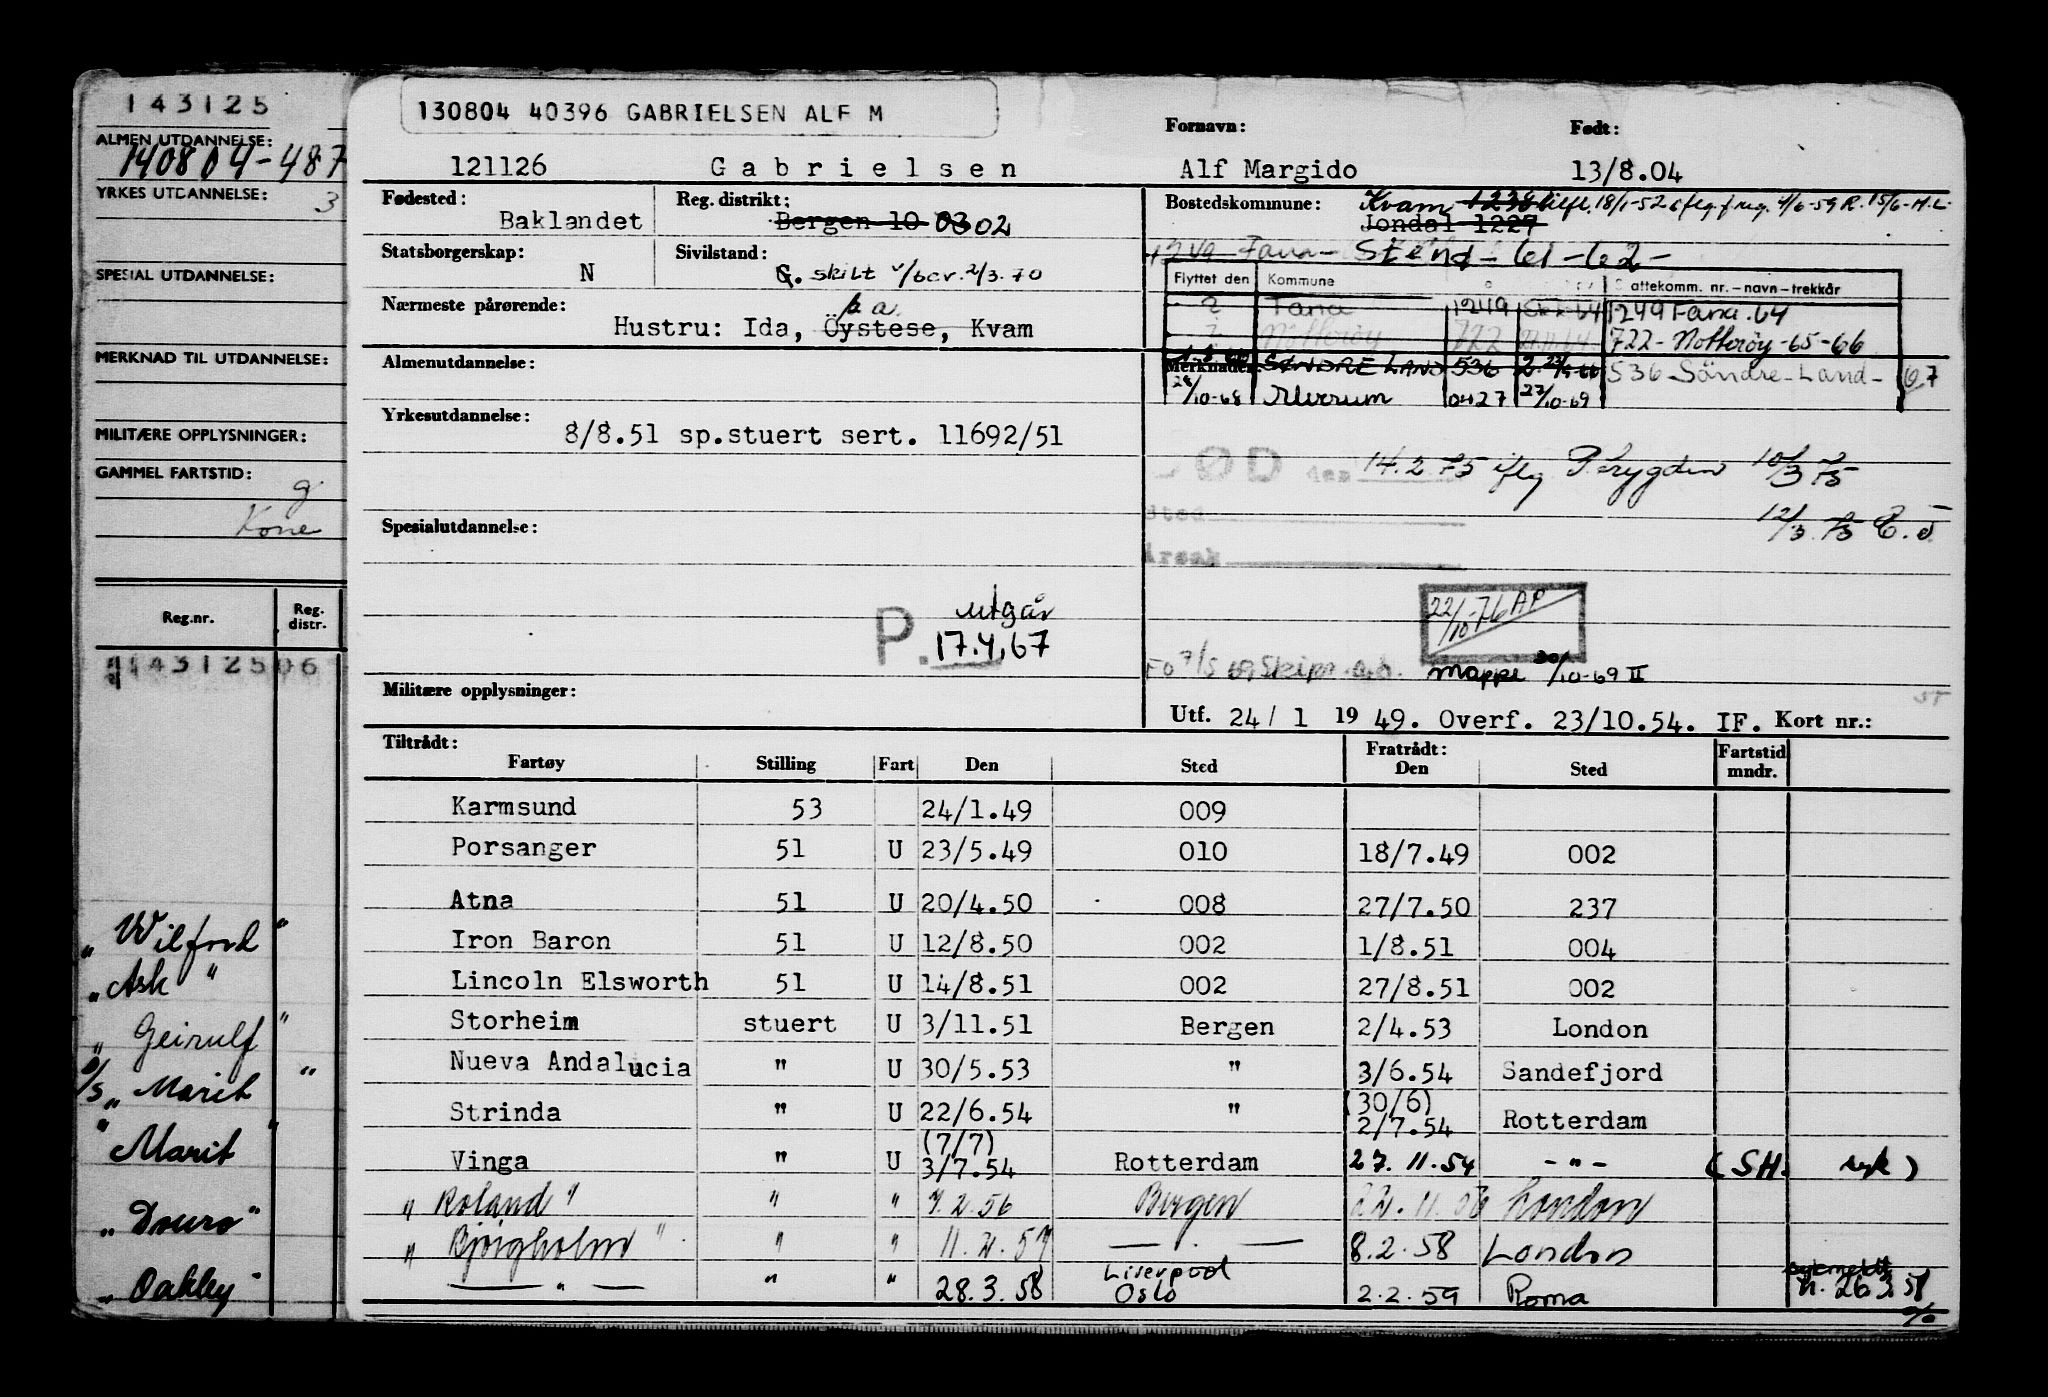 143125
ALMEN UTDANNELSE:
140804-487
YRKES UTDANNELSE:
3
SPESIAL UTDANNELSE:
MERKNAD TIL UTDANNELSE:
MILITÆRE OPPLYSNINGER:
GAMMEL FARTSTID:
g
Kone
Reg.nr. Reg. distr.
143125 06
"Wilford"
"Ask"
"Geirulf"
D/S "Marit"
"Marit"
"Douro"
"Oakley"
130804 40396 GABRIELSEN ALF M
Fornavn: Født:
121126 Gabrielsen Alf Margido 13/8.04
Fødested: Baklandet
Reg. distrikt: Bergen 10 03 02
Bostedskommune: Kvam 1238
Jondal 1227
Fana - Stend - 61-62-
Statsborgerskap: N
Sivilstand: G. skilt
Flyttet den Kommune attekomm. nr.-navn-trekkår
Fana 1249 1249 Fana.64
Nøtterøy 722 722- Nøtterøy-65-66
SØNDRE LAND 536 536 Søndre-Land- 67
28/10-68 Elverum 0427 27/10-69
Nærmeste pårørende:
Hustru: Ida, Öystese, Kvam
Almenutdannelse:
Merknader:
Yrkesutdannelse:
8/8.51 sp.stuert sert. 11692/51
DØD den 14.2 75 iflg 10/3 75
Sted 12/3.75
Årsak
Spesialutdannelse:
P. utgår
17.4.67
22/10-76 AP
Mappe 30/10-69 II
Militære opplysninger:
Utf. 24/ 1 19 49. Overf. 23/10.54. IF. Kort nr.:
Tiltrådt: Fratrådt: Fartstid
Fartøy Stilling Fart Den Sted Den Sted mndr.
Karmsund 53 24/1.49 009
Porsanger 51 U 23/5.49 010 18/7.49 002
Atna 51 U 20/4.50 008 27/7.50 237
Iron Baron 51 U 12/8.50 002 1/8.51 004
Lincoln Elsworth 51 U 14/8.51 002 27/8.51 002
Storheim stuert U 3/11.51 Bergen 2/4.53 London
Nueva Andalucia " U 30/5.53 " 3/6.54 Sandefjord
Strinda " U 22/6.54 " (30/6) 2/7.54 Rotterdam
Vinga " U (7/7) 3/7.54 Rotterdam 27.11.54 -"- (SH. syk)
"Roland" " " 7.2.56 Bergen 22.11.56 London
"Bjørgholm" " " 11.2.57 8.2.58 London
— " — " " 28.3.58 Liverpool Oslo 2.2.59 Roma n. 26.3.58